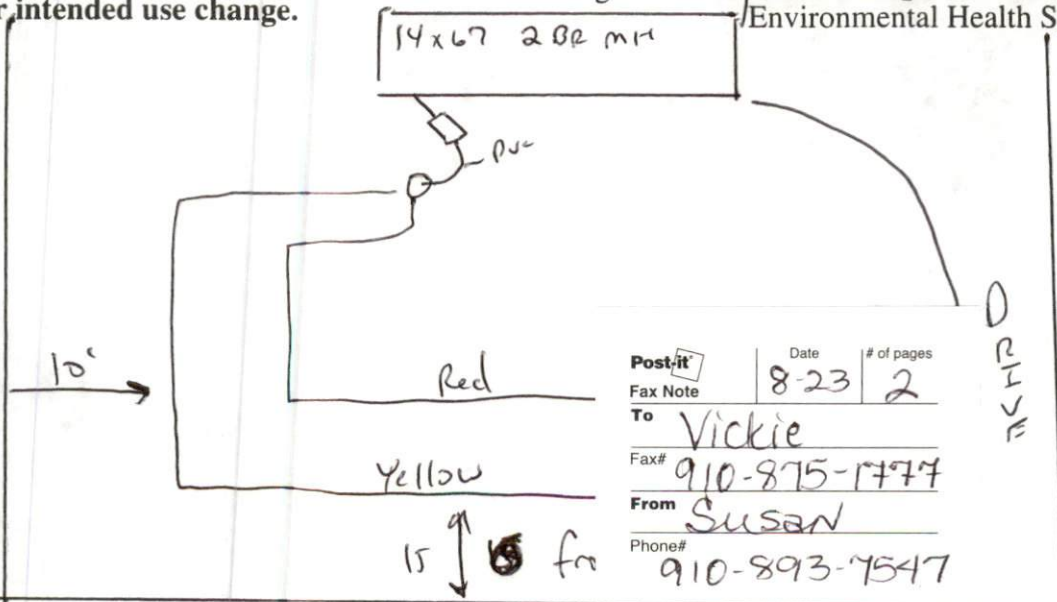 r intended use change.
/Environmental Health S
14x67 2BR MH
PVC
DRIVE
10'
Red
Yellow
15
fro
Post-it Fax Note
Date 8-23
# of pages 2
To Vickie
Fax# 910-875-1777
From Susan
Phone# 910-893-7547